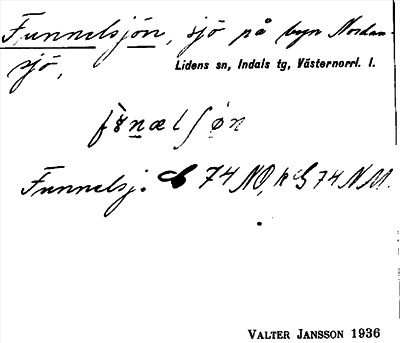 Funnelsjön, sjö på byn Nordan-
sjö,
Lidens sn, Indals tg, Västernorrl. l.
Funnelsj. 74 NO, k 74 NM.
VALTER JANSSON 1936